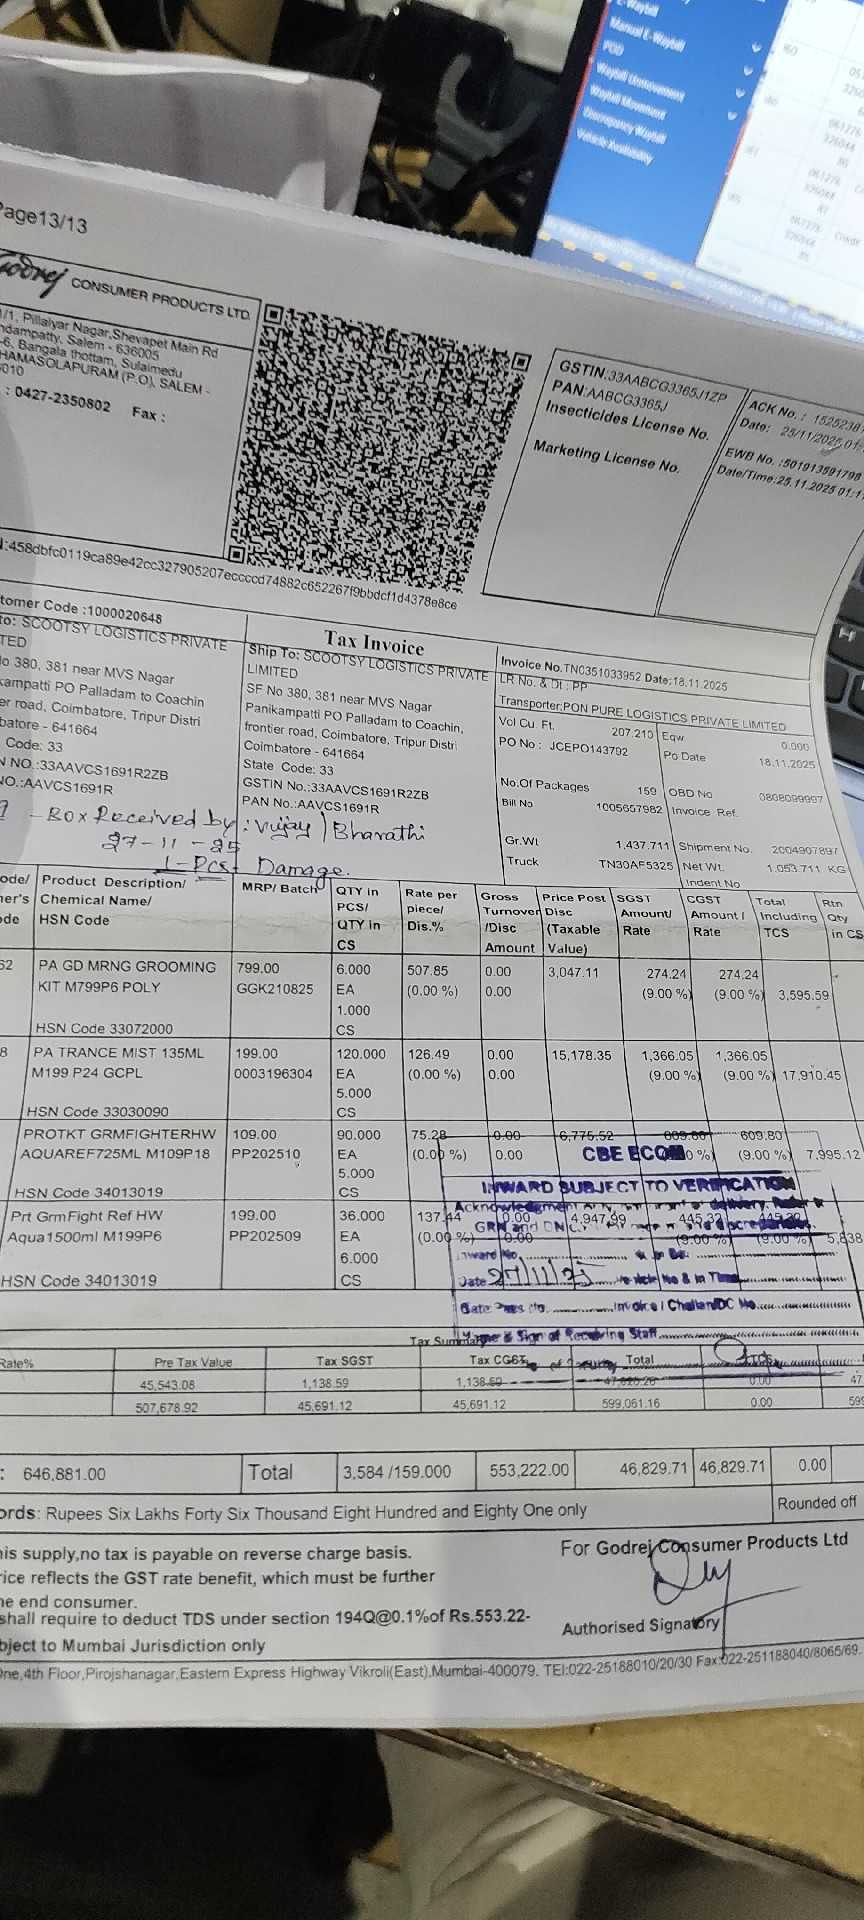 E-Waybill
Manual E-Waybill
POD
Waybill Movement
Discrepancy Waybill
Vehicle Availability
Page13/13
Godrej CONSUMER PRODUCTS LTD.
1/1, Pillaiyar Nagar,Shevapet Main Rd
ndampatty, Salem - 636005
-6, Bangala thottam, Sulaimedu
HAMASOLAPURAM (P.O), SALEM -
010
: 0427-2350802 Fax :
GSTIN:33AABCG3365J1ZP
PAN:AABCG3365J
Insecticides License No.
Marketing License No.
ACK No. : 1525238
Date: 25/11/2025 01:
EWB No. :501913591798
Date/Time:25.11.2025 01:1
:458dbfc0119ca89e42cc327905207eccccd74882c652267f9bbdcf1d4378e8ce
tomer Code :1000020648
Tax Invoice
to: SCOOTSY LOGISTICS PRIVATE
TED
lo 380, 381 near MVS Nagar
kampatti PO Palladam to Coachin
er road, Coimbatore, Tripur Distri
batore - 641664
Code: 33
N NO.:33AAVCS1691R2ZB
NO.:AAVCS1691R
Ship To: SCOOTSY LOGISTICS PRIVATE
LIMITED
SF No 380, 381 near MVS Nagar
Panikampatti PO Palladam to Coachin,
frontier road, Coimbatore, Tripur Distri
Coimbatore - 641664
State Code: 33
GSTIN No.:33AAVCS1691R2ZB
PAN No.:AAVCS1691R
Invoice No.TN0351033952 Date:18.11.2025
LR No. & Dt : PP
Transporter:PON PURE LOGISTICS PRIVATE LIMITED
Vol Cu. Ft. 207.210 Eqw 0.000
PO No : JCEPO143792 Po Date 18.11.2025
No.Of Packages 159 OBD No 0808099997
Bill No 1005657982 Invoice Ref.
Gr.Wt 1,437.711 Shipment No. 2004907897
Truck TN30AF5325 Net Wt. 1,053.711 KG
Indent No
9 - Box Received by : Vijay / Bharathi
27-11-25
1-Pcs Damage.
ode/ Product Description/ MRP/ Batch QTY in Rate per Gross Price Post SGST CGST Total Rtn
ner's Chemical Name/ PCS/ piece/ Turnover Disc Amount/ Amount / Including Qty
ode HSN Code QTY in Dis.% /Disc (Taxable Rate Rate TCS in CS
CS Amount Value)
62 PA GD MRNG GROOMING 799.00 6.000 507.85 0.00 3,047.11 274.24 274.24
KIT M799P6 POLY GGK210825 EA (0.00 %) 0.00 (9.00 %) (9.00 %) 3,595.59
1.000
HSN Code 33072000 CS
8 PA TRANCE MIST 135ML 199.00 120.000 126.49 0.00 15,178.35 1,366.05 1,366.05
M199 P24 GCPL 0003196304 EA (0.00 %) 0.00 (9.00 %) (9.00 %) 17,910.45
5.000
HSN Code 33030090 CS
PROTKT GRMFIGHTERHW 109.00 90.000 75.28 0.00 6,775.52 609.80 609.80
AQUAREF725ML M109P18 PP202510 EA (0.00 %) 0.00 0 %) (9.00 %) 7,995.12
5.000
HSN Code 34013019 CS
Prt GrmFight Ref HW 199.00 36.000 137.44 0.00 4,947.99 445.32
Aqua1500ml M199P6 PP202509 EA (0.00 %) 0.00 (9.00 %) (9.00 %) 5,838
6.000
HSN Code 34013019 CS
CBE ECOM
INWARD SUBJECT TO VERIFICATION
GRN and
Inward No
Date 27/11/25 Vehicle No & In Time
Gate Pass No. Invoice / Challan/DC No
Name & Sign of Receiving Staff
Tax Summary
Rate% Pre Tax Value Tax SGST Tax CGST Total
45,543.08 1,138.59 1,138.59 47,820.26 0.00 47
507,678.92 45,691.12 45,691.12 599,061.16 0.00 599
: 646,881.00 Total 3,584 /159.000 553,222.00 46,829.71 46,829.71 0.00
ords: Rupees Six Lakhs Forty Six Thousand Eight Hundred and Eighty One only Rounded off
his supply,no tax is payable on reverse charge basis.
rice reflects the GST rate benefit, which must be further
he end consumer.
shall require to deduct TDS under section 194Q@0.1%of Rs.553.22-
bject to Mumbai Jurisdiction only
For Godrej Consumer Products Ltd
Authorised Signatory
One,4th Floor,Pirojshanagar,Eastern Express Highway Vikroli(East),Mumbai-400079. TEl:022-25188010/20/30 Fax:022-251188040/8065/69.